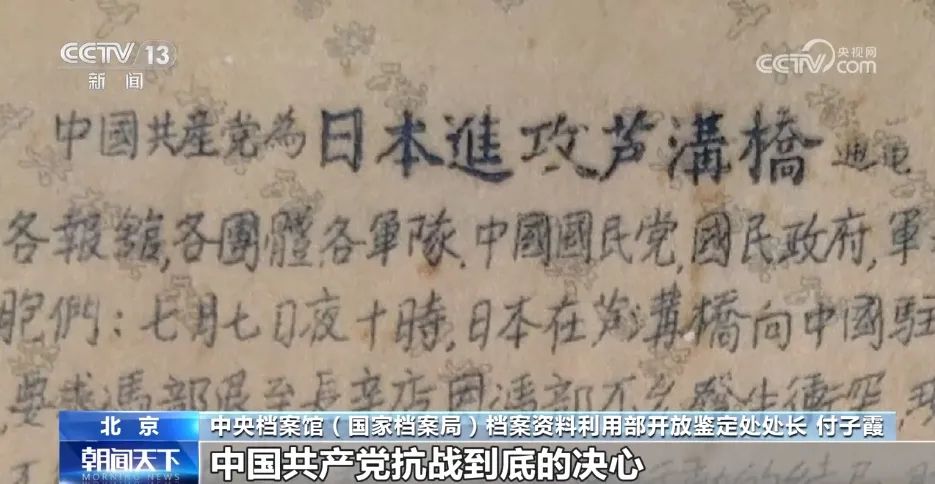 CCTV 13
新闻
央视网
CCTV.com
中國共産党為日本進攻芦溝橋通電
各報館,各團體,各軍隊,中國國民党,國民政府,軍
胞們：七月七日夜十時,日本在芦溝橋向中國駐
要求馮部退至長辛店,因馮部不允,發生衝突,現
北京
中央档案馆（国家档案局）档案资料利用部开放鉴定处处长 付子霞
朝闻天下
MORNING NEWS
中国共产党抗战到底的决心